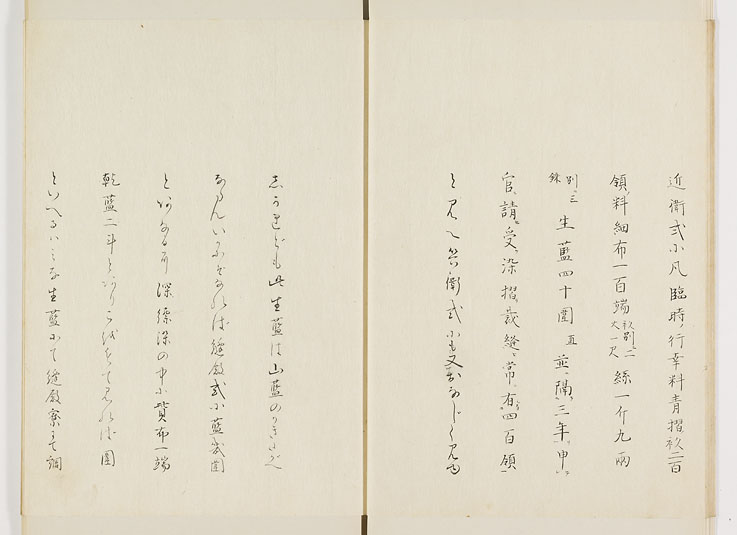 近衛式に凡臨時ノ行幸料青摺衫二百
領ノ料細布一百端 衫別ニ二丈一尺 絲一斤九両
別ニ三銖 生藍四十圍 直 並ニ隔ニ三年申レ
官ニ請ケ受ケ染摺裁縫ヘ常ニ有ニ四百領一
と見へ兵衛式にも又おなじく見ゆ
志かれども此生藍は山藍の
なれば縫殿式に藍幾圍
とあるは 深縹深の中に貲布一端
乾藍二斗とありて見れば圍
といへるハみな生藍にて縫殿寮にて調